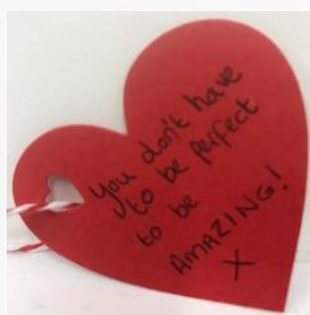 you don't have
to be perfect
to be
AMAZING!
X